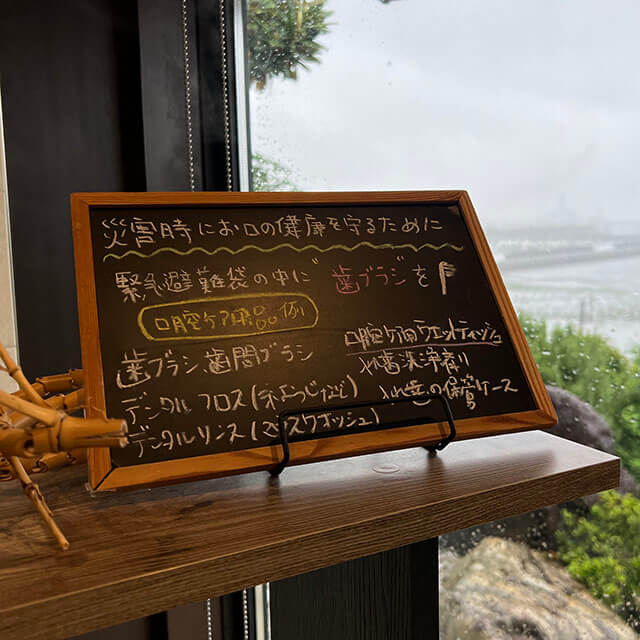 災害時にお口の健康を守るために
緊急避難袋の中に"歯ブラシ"を
口腔ケア用品例
歯ブラシ 歯間ブラシ
デンタルフロス(糸ようじなど)
デンタルリンス(マウスウォッシュ)
口腔ケア用ウエットティッシュ
入れ歯洗浄剤
入れ歯の保管ケース